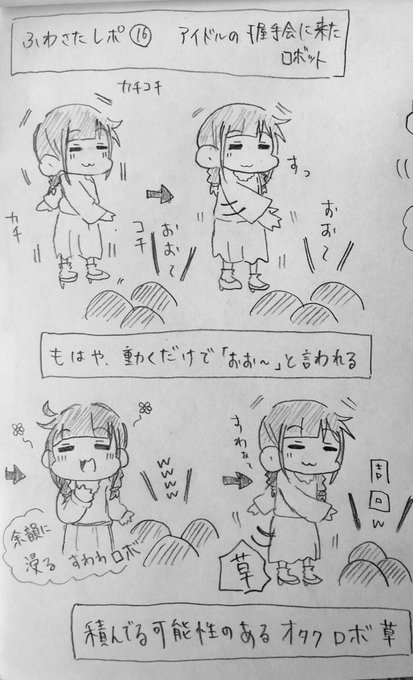 ふわさたレポ⑯ アイドルの握手会に来た
ロボット
カチコチ
カチ
コチ
おお〜
すっ
おお〜
もはや、動くだけで「おお〜」と言われる
wwww
すわぁ〜
余韻に
浸る すわわロボ
草
積んでる可能性のある オタクロボ草